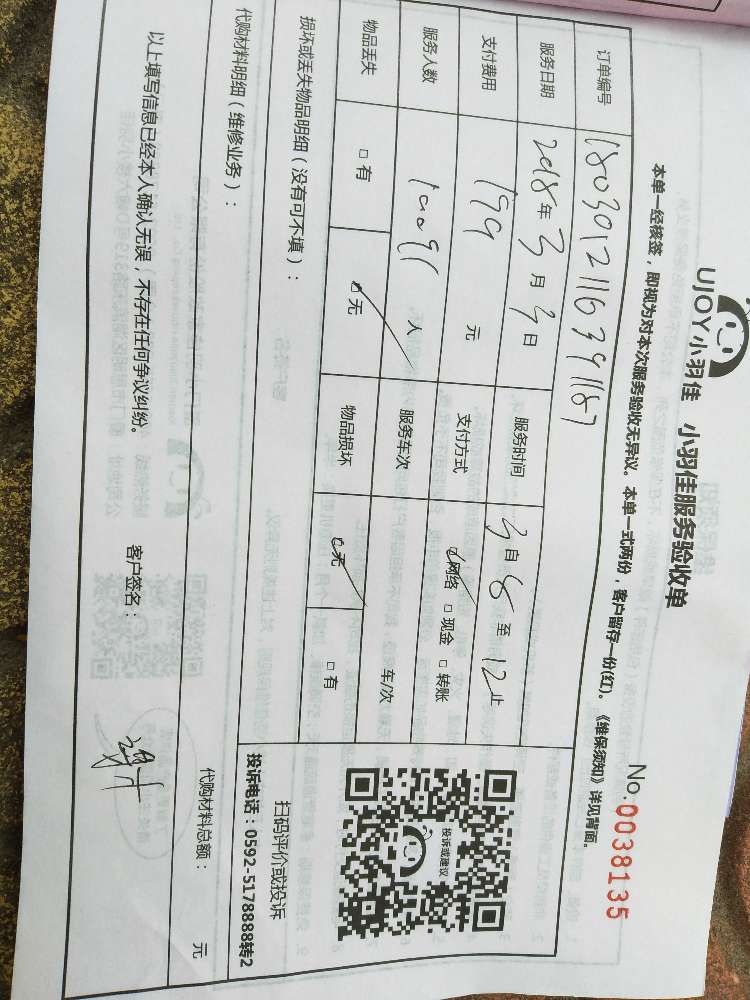 UJOY小羽佳 小羽佳服务验收单
No.0038135
本单一经核签，即视为对本次服务验收无异议。本单一式两份，客户留存一份(红)。《维保须知》详见背面。
订单编号 1803012116391167
服务日期 2018年3月3日 服务时间 3自8至12止
支付费用 199元 支付方式 网络 现金 转账
服务人数 人 服务车次 车/次
物品丢失 有 无 物品损坏 无 有
投诉或建议
扫码评价或投诉
投诉电话：0592-5178888转2
损坏或丢失物品明细（没有可不填）：
代购材料明细（维修业务）：
代购材料总额： 元
以上填写信息已经本人确认无误，不存在任何争议纠纷。 客户签名：